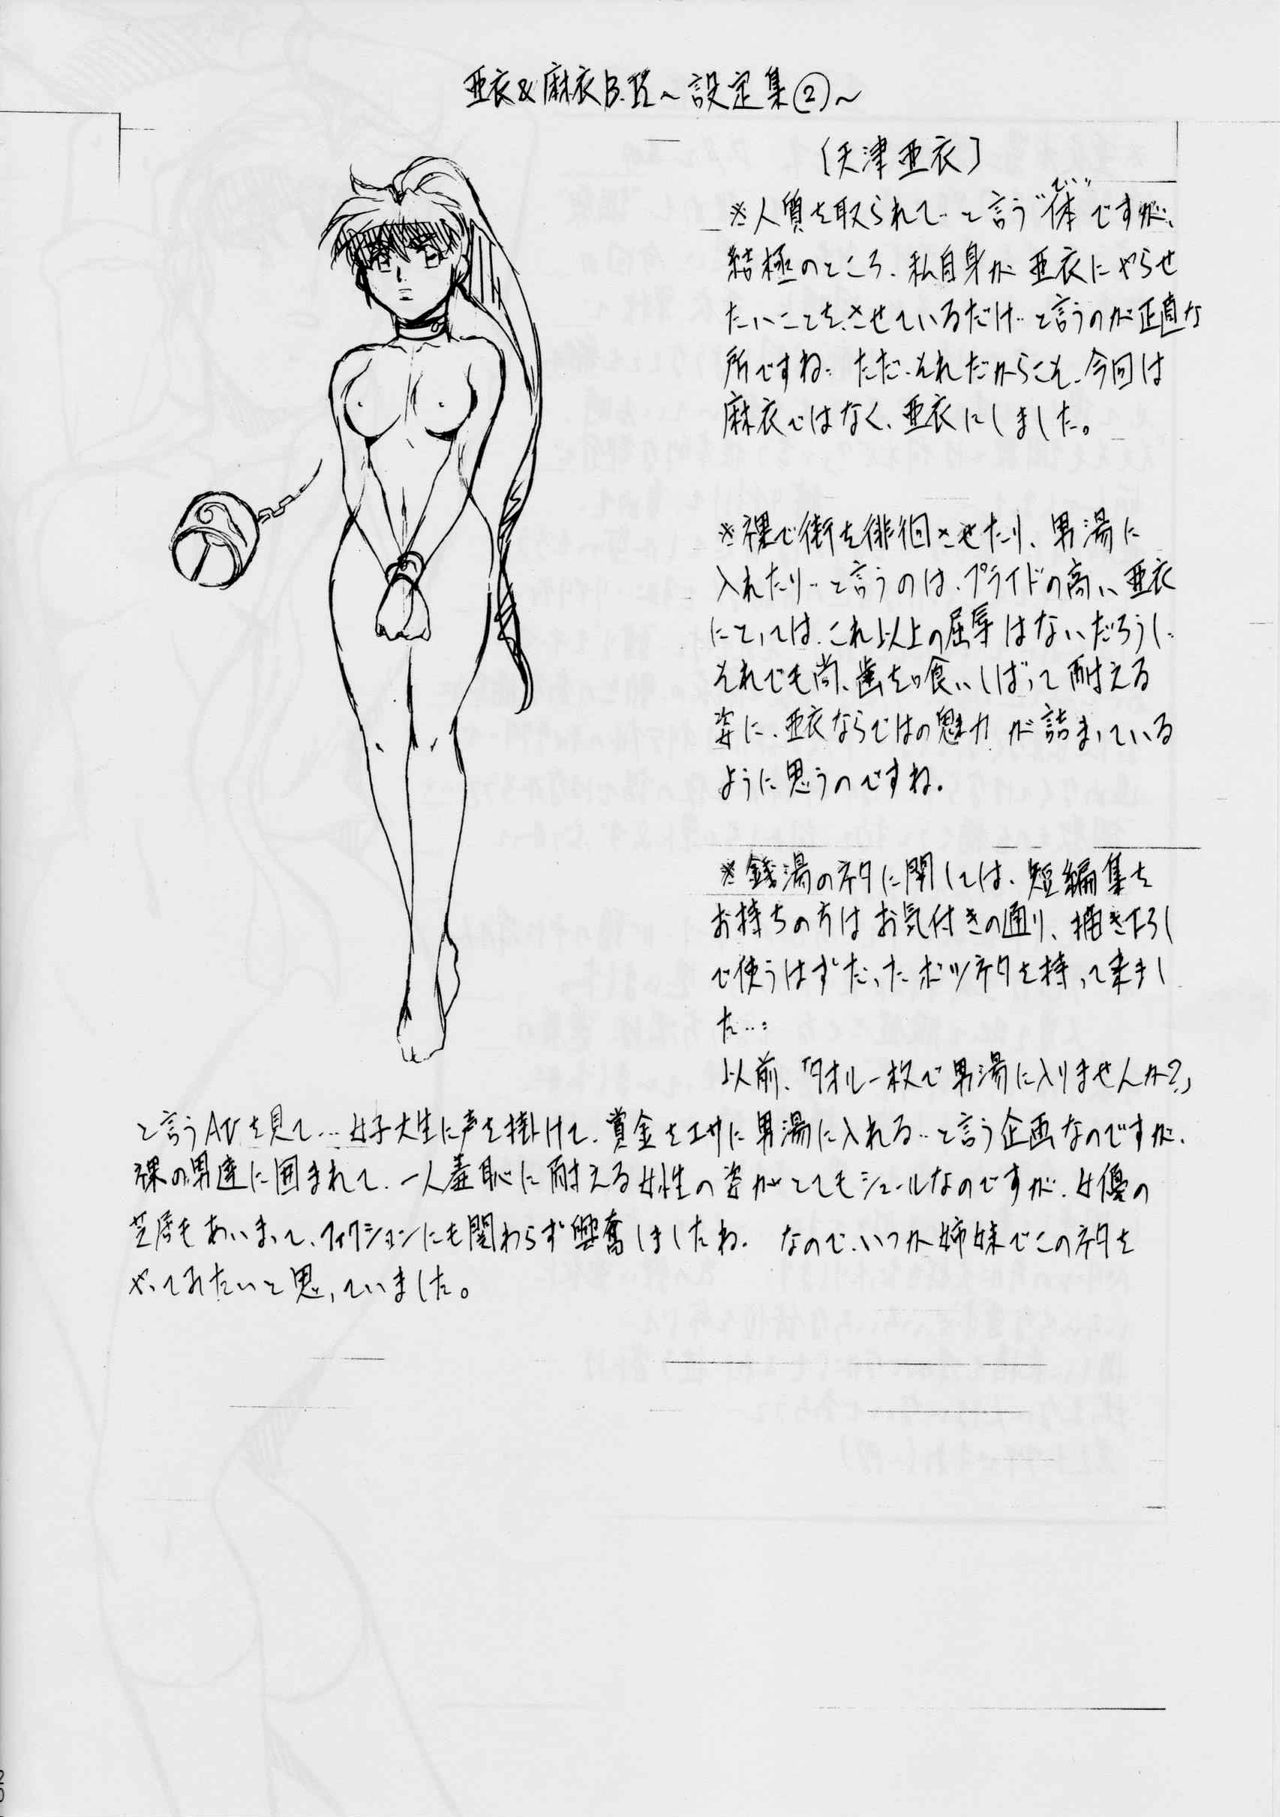 亜衣&麻衣B.R～設定集②～
〔天津亜衣〕
※人質を取られて…と言う"体"ですが、
てい
結極のところ、私自身が亜衣にやらせ
たいことを、させているだけ…と言うのが正直な
所ですね… ただ、それだからこそ、今回は
麻衣ではなく、亜衣にしました。
※裸で街を徘徊させたり、男湯に
入れたり…と言うのは、プライドの高い亜衣
にとっては、これ以上の屈辱はないだろうし、
それでも尚、歯を喰いしばって耐える
姿に、亜衣ならではの魅力が詰まっている
ように思うのですね。
※銭湯のネタに関しては、短編集を
お持ちの方はお気付きの通り、描き下ろし
で使うはずだったボツネタを持って来まし
た…
以前、「タオル一枚で男湯に入りませんか?」
と言うAVを見て…女子大生に声を掛けて、賞金をエサに男湯に入れる…と言う企画なのですが、
裸の男達に囲まれて、一人羞恥に耐える女性の姿がとてもシュールなのですが、女優の
芝居もあいまって、フィクションにも関わらず興奮しましたね。 なので、いつか姉妹でこのネタを
やってみたいと思っていました。